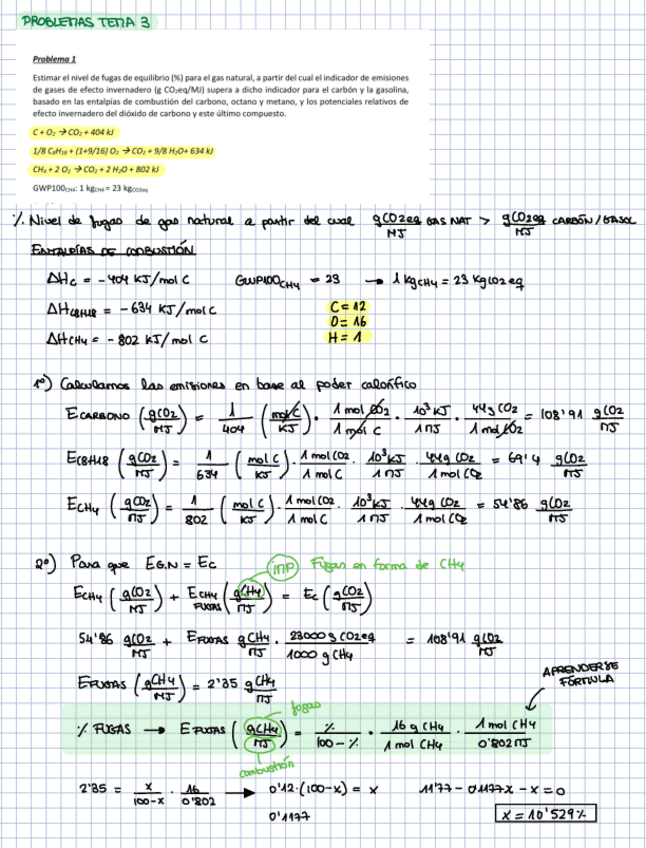 PROBLEMAS TEMA 3
Problema 1
Estimar el nivel de fugas de equilibrio (%) para el gas natural, a partir del cual el indicador de emisiones
de gases de efecto invernadero (g CO₂eq/MJ) supera a dicho indicador para el carbón y la gasolina,
basado en las entalpías de combustión del carbono, octano y metano, y los potenciales relativos de
efecto invernadero del dióxido de carbono y este último compuesto.
C + O₂ → CO₂ + 404 kJ
1/8 C₈H₁₈ + (1+9/16) O₂ → CO₂ + 9/8 H₂O + 634 kJ
CH₄ + 2 O₂ → CO₂ + 2 H₂O + 802 kJ
GWP100CH4: 1 kgCH4 = 23 kgCO2eq
% Nivel de fugas de gas natural a partir del cual gCO2eq/MJ GAS NAT > gCO2eq/MJ CARBÓN/GASOL
ENTALPÍAS DE COMBUSTIÓN
ΔHc = -404 KJ/mol C GWP100CH4 = 23 → 1 kgCH4 = 23 KgCO2eq
ΔHC8H18 = -634 KJ/mol C C = 12
O = 16
ΔHCH4 = -802 KJ/mol C H = 1
1º) Calculamos las emisiones en base al poder calorífico
ECARBONO (gCO2/MJ) = 1/404 (mol C/KJ) · 1 mol CO2/1 mol C · 10³ KJ/1 MJ · 44g CO2/1 mol CO2 = 108'91 gCO2/MJ
EC8H18 (gCO2/MJ) = 1/634 (mol C/KJ) · 1 mol CO2/1 mol C · 10³ KJ/1 MJ · 44g CO2/1 mol CO2 = 69'4 gCO2/MJ
ECH4 (gCO2/MJ) = 1/802 (mol C/KJ) · 1 mol CO2/1 mol C · 10³ KJ/1 MJ · 44g CO2/1 mol CO2 = 54'86 gCO2/MJ
2º) Para que EG.N = EC imp Fugas en forma de CH4
ECH4 (gCO2/MJ) + ECH4 FUGAS (gCH4/MJ) = EC (gCO2/MJ)
54'86 gCO2/MJ + EFUGAS gCH4/MJ · 23000 g CO2eq/1000 g CH4 = 108'91 gCO2/MJ
EFUGAS (gCH4/MJ) = 2'35 gCH4/MJ
APRENDERSE
FÓRMULA
fugas
% FUGAS → EFUGAS (gCH4/MJ) = %/100-% · 16 g CH4/1 mol CH4 · 1 mol CH4/0'802 MJ
combustión
2'35 = x/100-x · 16/0'802 → 0'12·(100-x) = x 11'77 - 0'1177x - x = 0
0'1177 x = 10'529%